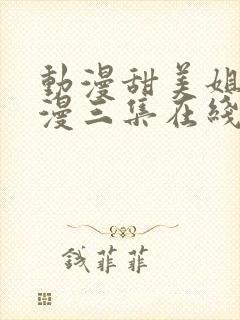 動漫甜美姐
漫三集在綫
钱菲菲